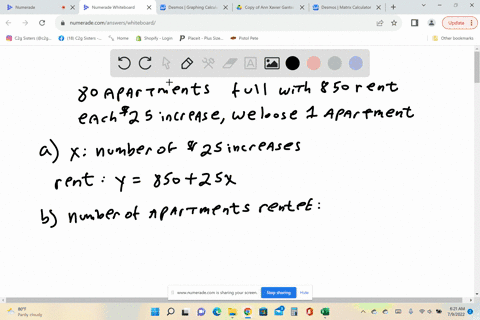 Numerade
Numerade Whiteboard
Desmos | Graphing Calcul
Copy of Ann Xavier Gantw
Desmos | Matrix Calculator
numerade.com/answers/whiteboard/
Update
C2g Sisters (@c2g...
(18) C2g Sisters |...
Home
Shopify - Login
Placeit - Plus Size...
Pistol Pete
Other bookmarks
80 APArtments full with 850 rent
each $25 increase, we loose 1 APArtment
a) x: number of $25 increases
rent: y = 850+25x
b) number of APArtments rentet:
www.numerade.com is sharing your screen.
Stop sharing
Hide
80°F
Partly cloudy
6:21 AM
7/9/2022